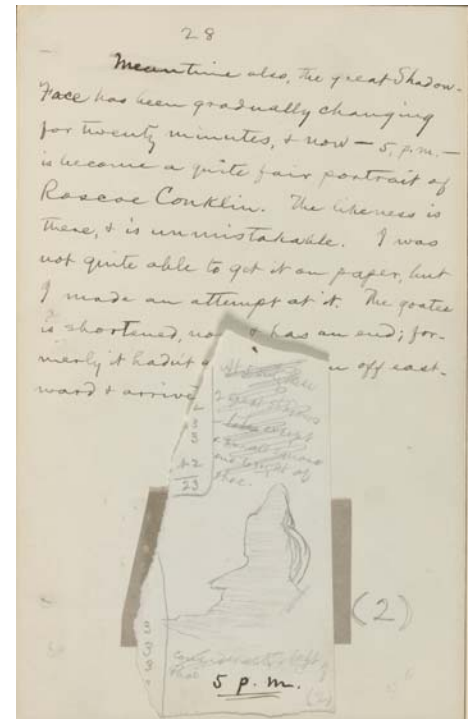 28
Meantime also, the great Shadow-
Face has been gradually changing
for twenty minutes, & now — 5, p.m. —
is become a quite fair portrait of
Roscoe Conklin. The likeness is
there, & is unmistakable. I was
not quite able to get it on paper, but
I made an attempt at it. The goatee
is shortened, & has an end; for-
merly it hadn't off east-
ward & arrive
2 great
except
one length of
shoe.
23
(2)
5 p.m.